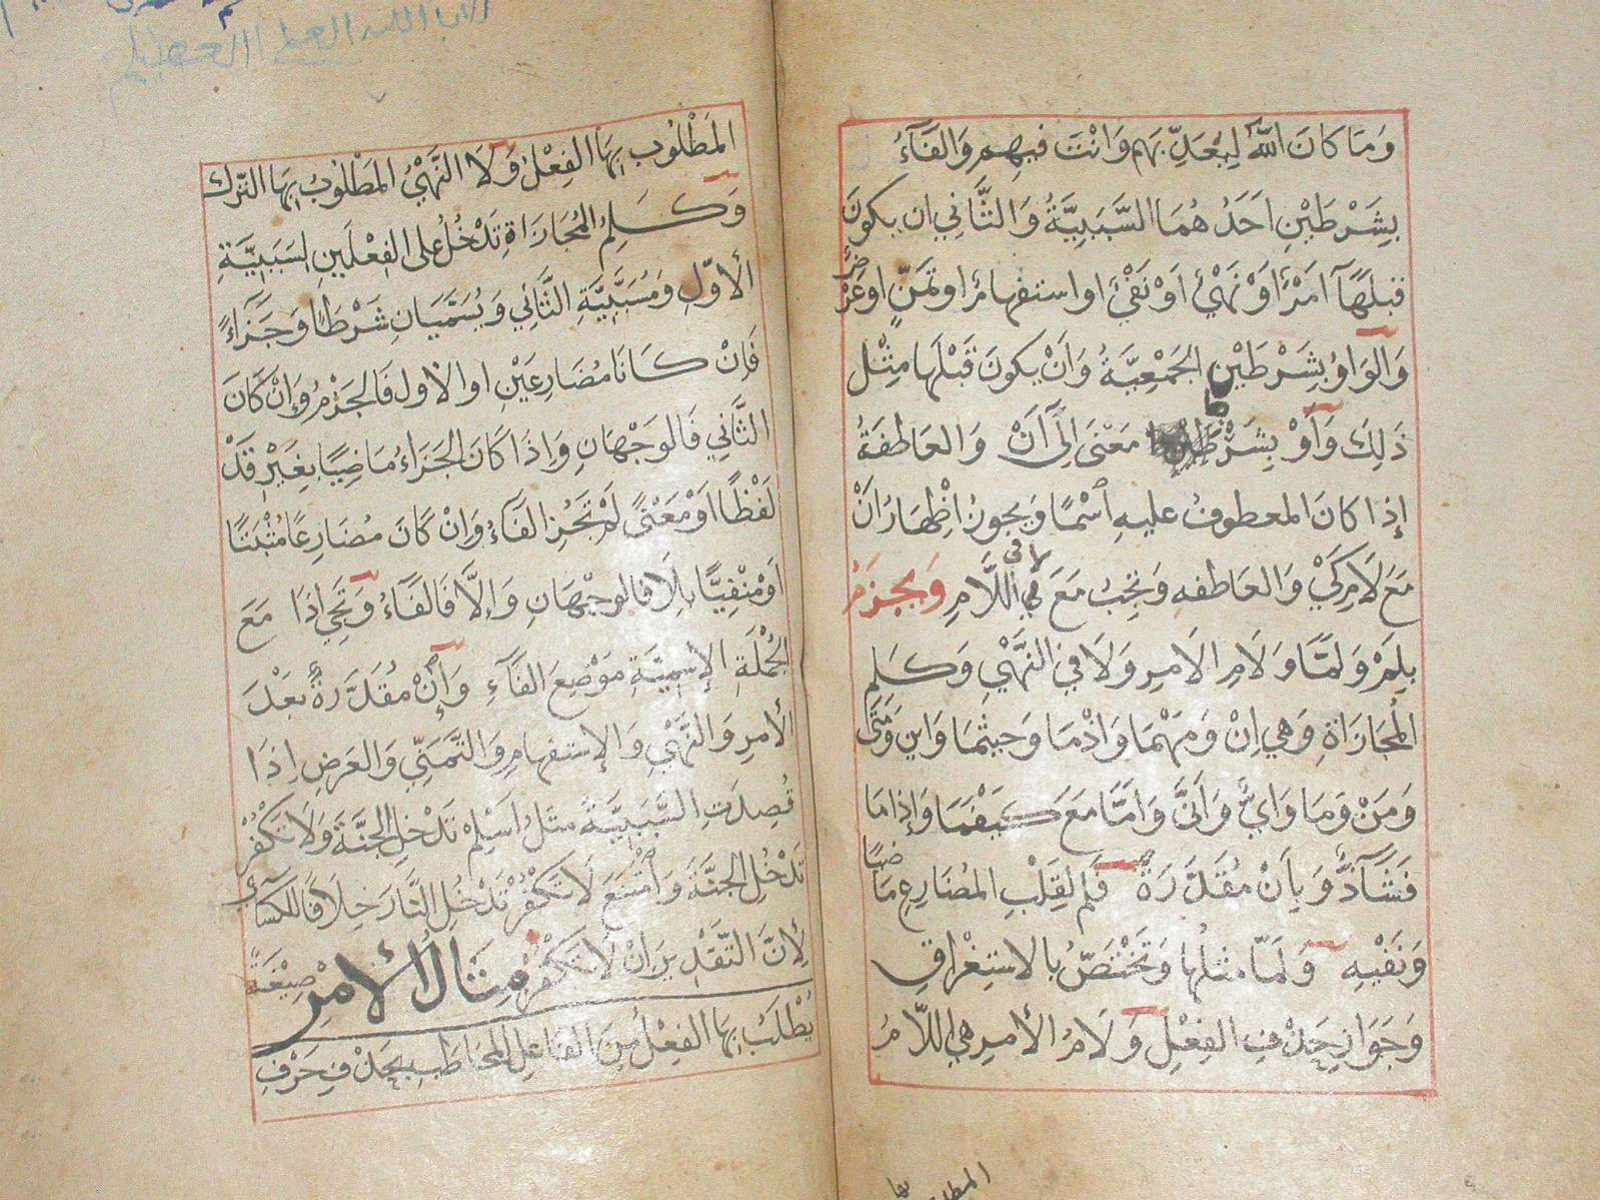 وَمَا كَانَ اللّٰهُ لِيُعَذِّبَهُم وَانْتَ فِيهِم وَالفَآءُ
بِشَرْطَيْنِ اَحَدُهُمَا السَّبَبِيَّةُ وَالثَّانِي ان يكونَ
قبلَهَآ اَمْرٌ اَوْ نَهْيٌ اَوْ نَفْيٌ او استفهامٌ او تَمَنٍّ او عَرْضٌ
وَالوَاوُ بِشَرْطَيْنِ الجَمْعِيَّةُ وَاَنْ يكونَ قَبْلَهَا مِثْل
ذَلِكَ وَاَوْ بِشَرْطِ مَعْنَى اِلَى اَنْ وَالعَاطِفَةُ
إذا كانَ المعطوفُ عليهِ اسْمًا وَيجوزُ اِظْهَارُ اَنْ
مَعَ لَامِ كَيْ وَالعَاطفه وَيَجِبُ مَعَ لا في اللَّامِ وَيجزمُ
بِلَمْ وَلَمَّا وَلَامِ الامرِ وَلَا في النَّهْيِ وَكَلِمِ
المُجَازَاةِ وَهي اِنْ وَمَهْمَا وَاِذْمَا وَحيثُمَا وَاين وَمَتَى
وَمَنْ وَمَا وَايٌّ وَاَنَّى وَاَمَّا مَعَ كَيْفَمَا وَإذا مَا
فَشَآذٌّ وَبِاَنْ مُقَدَّرَةً فَلم لِقَلْبِ المُضَارِعِ مَاضيًا
وَنَفْيِهِ وَلَمّا مثلُهَا وَتَخْتَصُّ بالاستِغْرَاقِ
وَجَوَازِ حَذْفِ الفِعْلِ وَلَامُ الأمرِ هي اللَّامُ
المَطْلُوبُ بِهَا الفِعْلُ وَلَا النَّهْيُ المَطْلُوبُ بِهَا التَّرْك
وَكَلِمُ المُجَازَاةِ تَدْخُلُ على الفِعْلَينِ لِسَبَبِيَّةِ
الأوّلِ وَمُسَبَّبِيَّةِ الثَّانِي وَيُسَمَّيَانِ شَرْطًا وَجَزَاءً
فَاِنْ كَانَا مُضَارِعَيْنِ او الاول فَالجَزْمُ وَإِنْ كَانَ
الثَّاني فَالوَجْهَانِ وَاِذَا كَانَ الجَزَاءُ مَاضِيًا بِغَيْرِ قَدْ
لَفْظًا اَوْ مَعْنًى لَمْ تَجُزِ الفَآءُ وَاِنْ كَانَ مُضَارِعًا مُثْبَتًا
اَوْ مَنْفِيًّا بِلَا فَالوَجْهَانِ وَاِلَّا فَالفَآءُ وَتَجِي اِذَا مَعَ
الجُمْلَةِ الإسْمِيَّةِ مَوْضِعَ الفَآءِ وَاِنْ مُقَدَّرَةٌ بَعْدَ
الأمرِ وَالنَّهْيِ وَالإستفهامِ وَالتَّمَنِّي وَالعَرْضِ اِذَا
قُصِدَتِ السَّبَبِيَّةُ مثلُ اَسْلِمْ تَدْخلِ الجنَّةَ وَلَا تكْفُرْ
تَدْخُلِ الجنَّةَ وَامْتَنَعَ لَا تَكْفُرْ تَدْخُلِ النَّارَ خِلَافًا للكسَائي
لِأَنَّ التَّقْدِيرَ اِنْ لَا تَكْفُرْ مِثَالُ الأمْرِ صِيْغَةٌ
يُطْلَبُ بِهَا الفِعْلُ مِنَ الفَاعِلِ المخَاطَبِ بحَذْفِ حَرْفِ
المطلوب بها